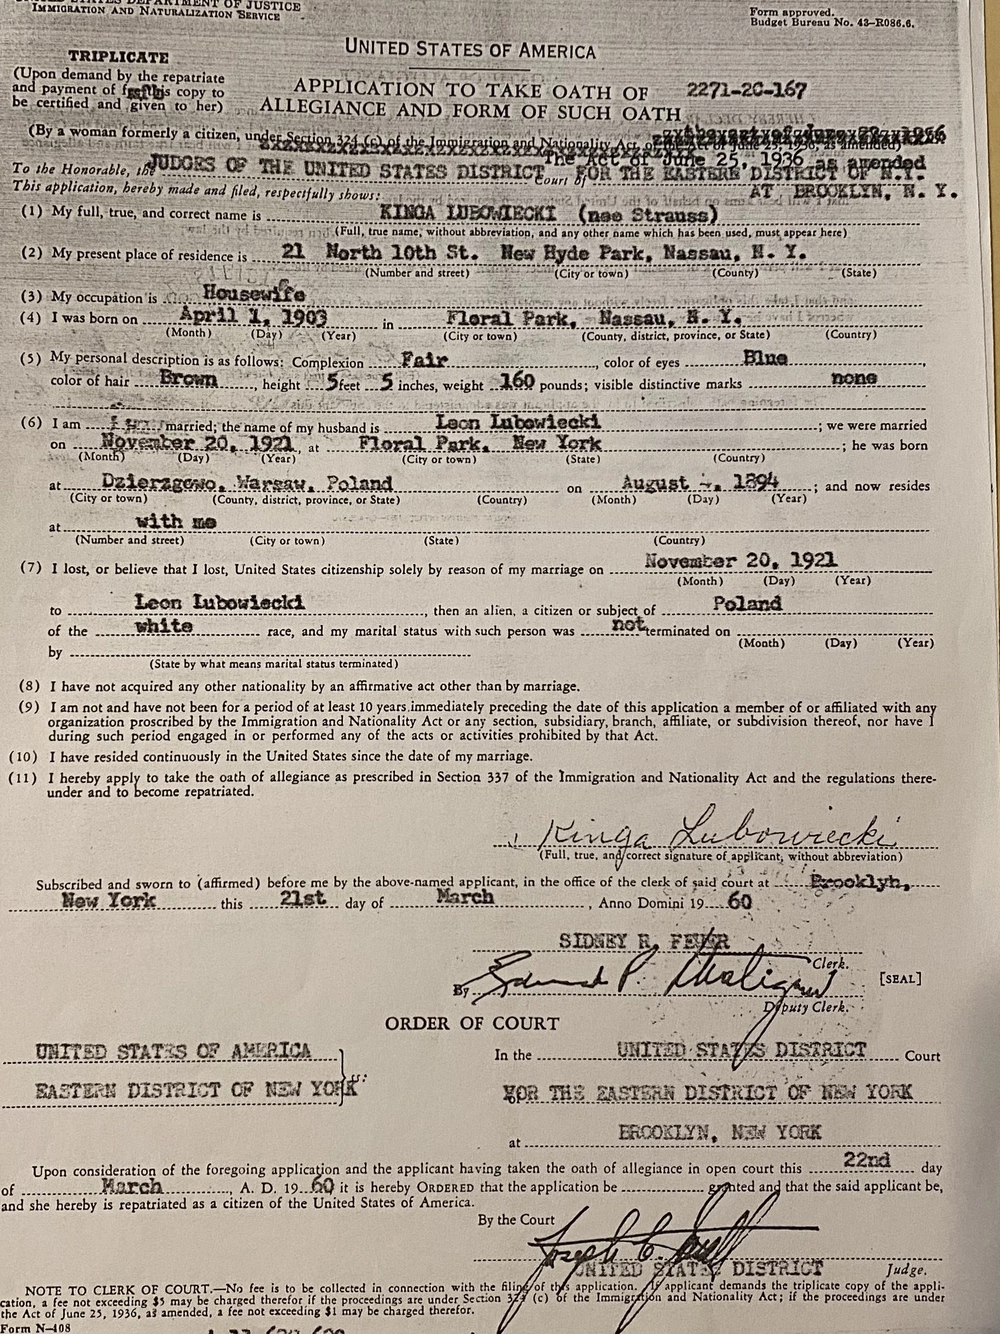 UNITED STATES DEPARTMENT OF JUSTICE
IMMIGRATION AND NATURALIZATION SERVICE
Form approved.
Budget Bureau No. 43-R086.6.
TRIPLICATE
(Upon demand by the repatriate
and payment of fee this copy to
be certified and given to her)
UNITED STATES OF AMERICA
APPLICATION TO TAKE OATH OF
ALLEGIANCE AND FORM OF SUCH OATH
2271-2C-167
(By a woman formerly a citizen, under Section 324 (c) of the Immigration and Nationality Act, or the Act of June 25, 1936, as amended)
The Act of June 25, 1936 as amended
To the Honorable, the JUDGES OF THE UNITED STATES DISTRICT Court of FOR THE EASTERN DISTRICT OF N.Y.
This application, hereby made and filed, respectfully shows: AT BROOKLYN, N. Y.
(1) My full, true, and correct name is KINGA LUBOWIECKI (nee Strauss)
(Full, true name, without abbreviation, and any other name which has been used, must appear here)
(2) My present place of residence is 21 North 10th St. New Hyde Park, Nassau, N. Y.
(Number and street) (City or town) (County) (State)
(3) My occupation is Housewife
(4) I was born on April 1, 1903 in Floral Park, Nassau, N. Y.
(Month) (Day) (Year) (City or town) (County, district, province, or State) (Country)
(5) My personal description is as follows: Complexion Fair, color of eyes Blue,
color of hair Brown, height 5 feet 5 inches, weight 160 pounds; visible distinctive marks none
(6) I am married; the name of my husband is Leon Lubowiecki; we were married
on November 20, 1921, at Floral Park, New York; he was born
(Month) (Day) (Year) (City or town) (State) (Country)
at Dzierzgowo, Warsaw, Poland on August -, 1894; and now resides
(City or town) (County, district, province, or State) (Country) (Month) (Day) (Year)
at with me
(Number and street) (City or town) (State) (Country)
(7) I lost, or believe that I lost, United States citizenship solely by reason of my marriage on November 20, 1921
(Month) (Day) (Year)
to Leon Lubowiecki, then an alien, a citizen or subject of Poland
of the white race, and my marital status with such person was not terminated on
(Month) (Day) (Year)
by
(State by what means marital status terminated)
(8) I have not acquired any other nationality by an affirmative act other than by marriage.
(9) I am not and have not been for a period of at least 10 years immediately preceding the date of this application a member of or affiliated with any
organization proscribed by the Immigration and Nationality Act or any section, subsidiary, branch, affiliate, or subdivision thereof, nor have I
during such period engaged in or performed any of the acts or activities prohibited by that Act.
(10) I have resided continuously in the United States since the date of my marriage.
(11) I hereby apply to take the oath of allegiance as prescribed in Section 337 of the Immigration and Nationality Act and the regulations there-
under and to become repatriated.
Kinga Lubowiecki
(Full, true, and correct signature of applicant, without abbreviation)
Subscribed and sworn to (affirmed) before me by the above-named applicant, in the office of the clerk of said court at Brooklyn,
New York this 21st day of March, Anno Domini 19 60
SIDNEY R. FEUER
Clerk.
[SEAL]
By
Deputy Clerk.
ORDER OF COURT
UNITED STATES OF AMERICA
In the UNITED STATES DISTRICT Court
EASTERN DISTRICT OF NEW YORK
ss:
FOR THE EASTERN DISTRICT OF NEW YORK
at BROOKLYN, NEW YORK
Upon consideration of the foregoing application and the applicant having taken the oath of allegiance in open court this 22nd day
of March, A. D. 19 60 it is hereby ORDERED that the application be granted and that the said applicant be,
and she hereby is repatriated as a citizen of the United States of America.
By the Court
UNITED STATES DISTRICT Judge.
NOTE TO CLERK OF COURT.—No fee is to be collected in connection with the filing of this application. If applicant demands the triplicate copy of the appli-
cation, a fee not exceeding $5 may be charged therefor if the proceedings are under Section 324 (c) of the Immigration and Nationality Act; if the proceedings are under
the Act of June 25, 1936, as amended, a fee not exceeding $1 may be charged therefor.
Form N-408